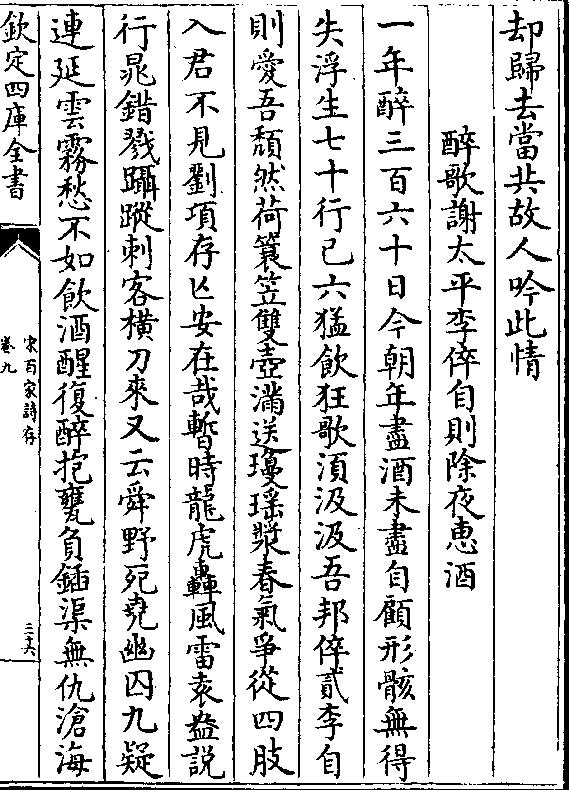 却歸去當共故人吟此情
醉歌謝太平李倅自則除夜惠酒
一年醉三百六十日今朝年盡酒未盡自顧形骸無得
失浮生七十行已六猛飲狂歌須汲汲吾邦倅貳李自
則愛吾頽然荷簑笠雙壺滿送瓊瑶漿春氣爭從四肢
入君不見劉項存亡安在哉暫時龍虎轟風雷袁盎説
行晁錯戮躡蹤刺客橫刀來又云舜野死堯幽囚九疑
連延雲霧愁不如飲酒醒復醉抱甕負鍤渠無仇滄海
欽定四庫全書
宋百家詩存
卷九
三六